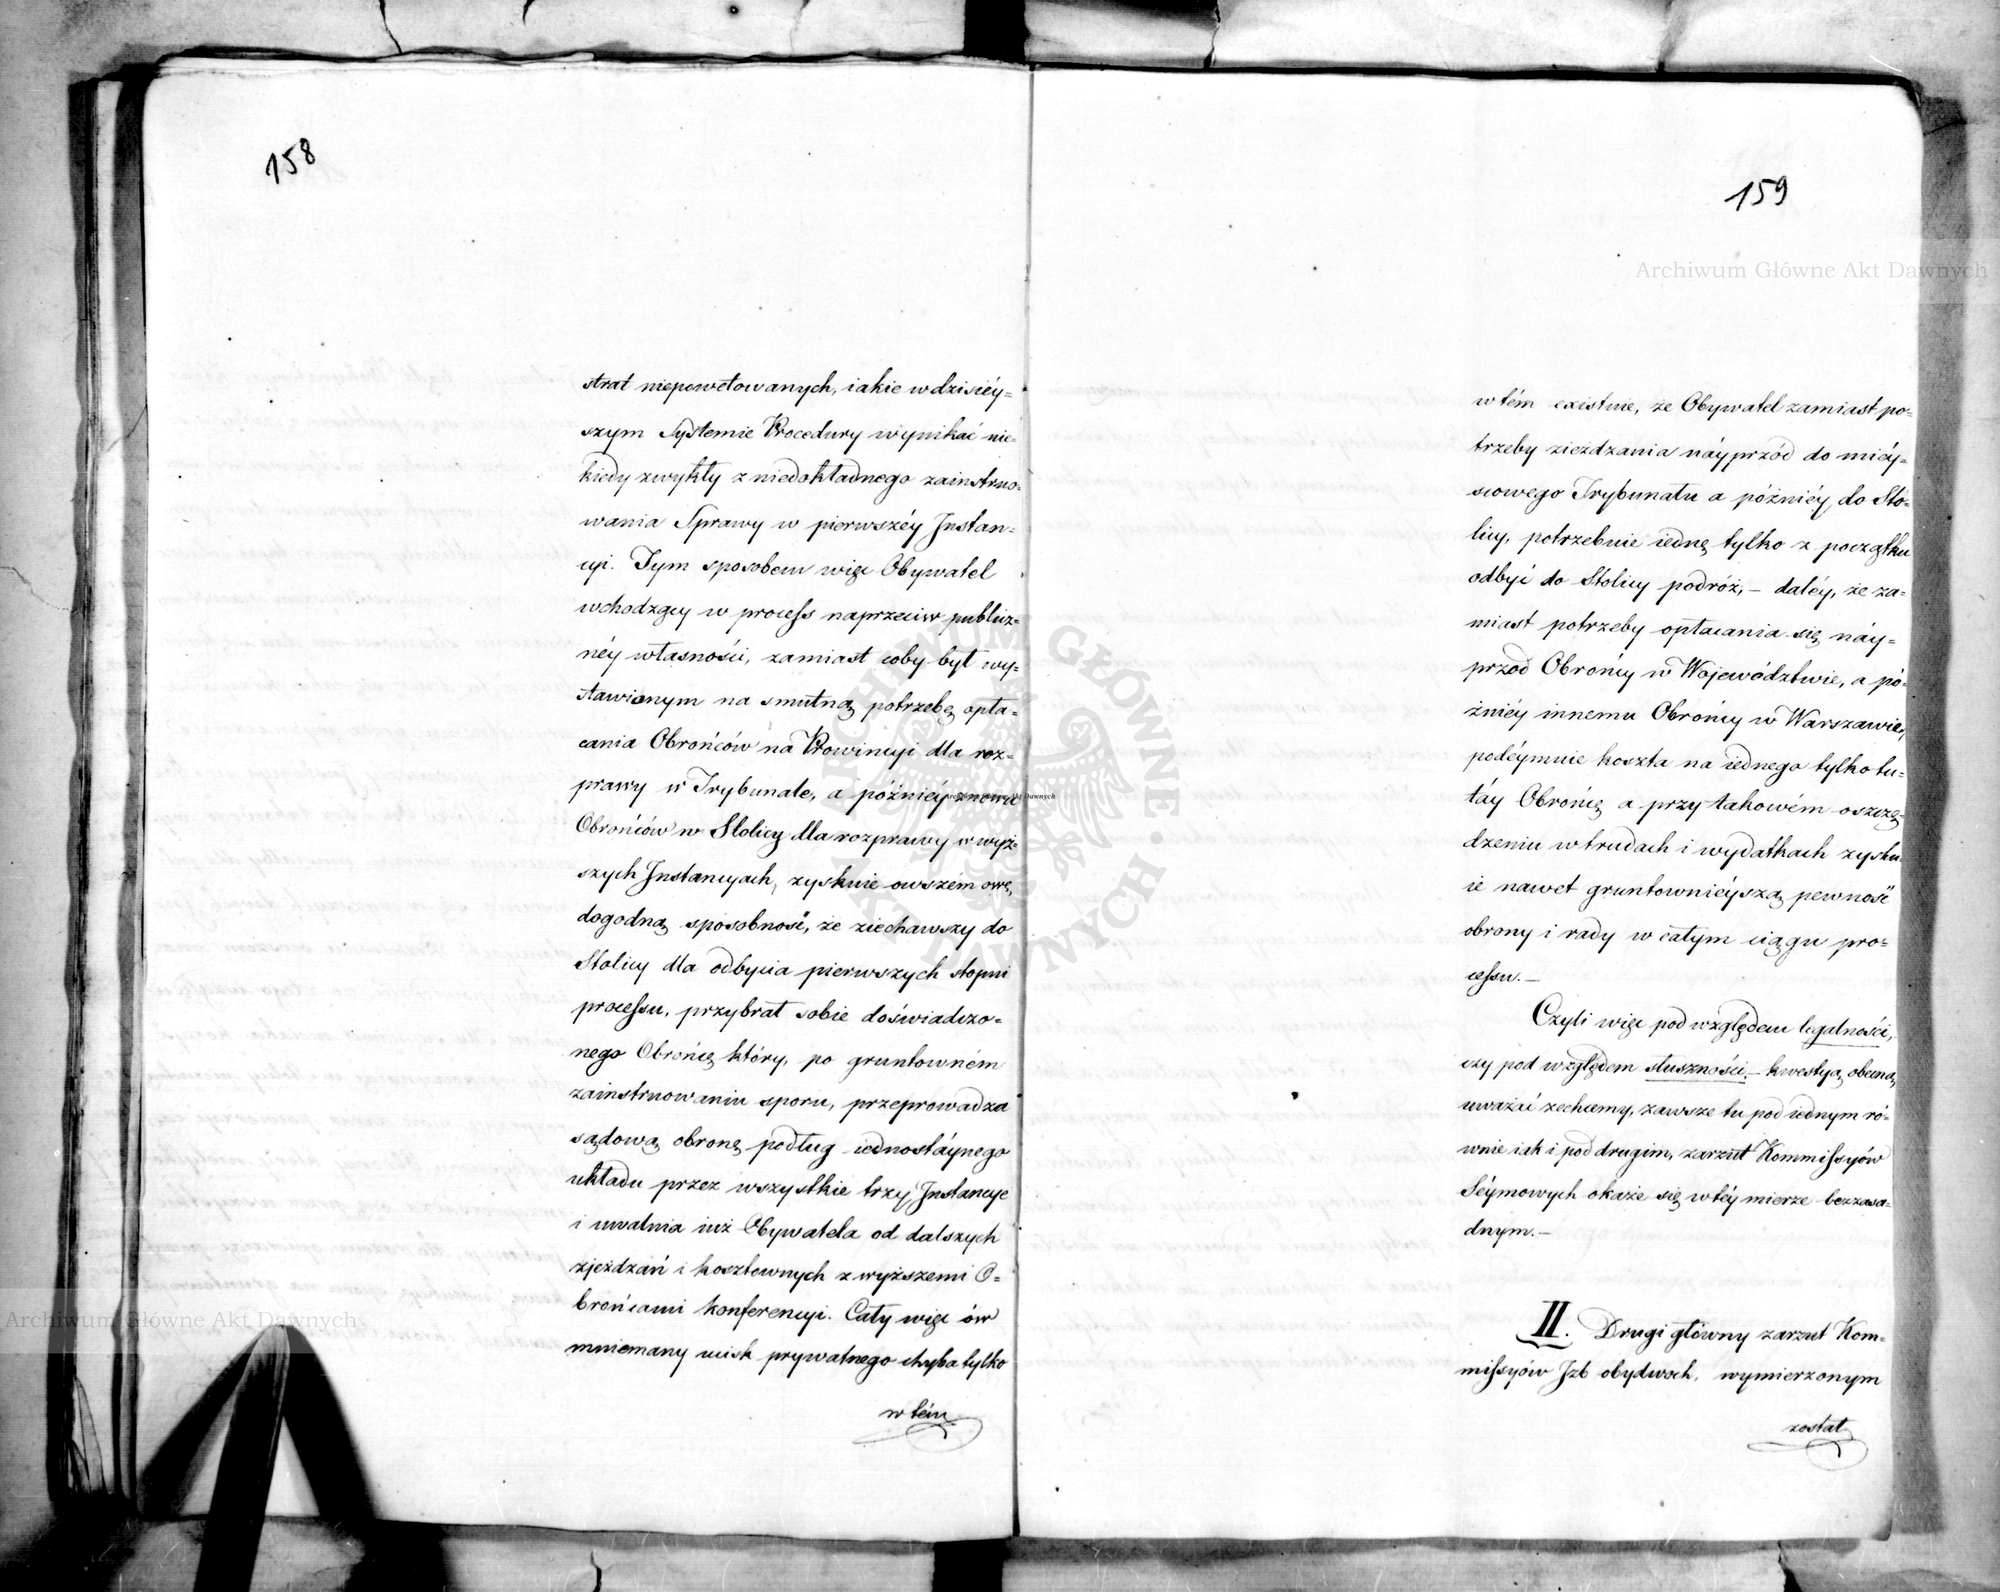 158
strat niepowetowanych, iakie w dzisiéy=
szym Systemie Procedury wynikać nie=
kiedy zwykły z niedokładnego zainstruo=
wania Sprawy w pierwszéy Instan=
cyi. Tym sposobem więc Obywatel
wchodzący w process naprzeciw publicz=
néy własności, zamiast coby był wy=
stawionym na smutną potrzebę opła=
cania Obrońców na Prowincyi dla roz=
prawy w Trybunale, a późniéy znowu
Obrońców w Stolicy dla rozprawy w wyż=
szych Instancyach, zyskuie owszem owę,
dogodną sposobność, że ziechawszy do
Stolicy dla odbycia pierwszych stopni
processu, przybrał sobie doświadczo=
nego Obrońcę który, po gruntowném
zainstruowaniu sporu, przeprowadza
sądową obronę podług iednostáynego
układu przez wszystkie trzy Instancye
i uwalnia iuż Obywatela od dalszych
zjeżdzań i kosztownych z wyższemi O=
brońcami konferencyi. Cały więc ów
mniemany ucisk prywatnego chyba tylko
w tém
159
w tém existuie, że Obywatel zamiast po=
trzeby zieżdzania náyprzód do mieý=
scowego Trybunału a późniéy do Sto=
licy, potrzebuie iednę tylko z początku
odbyć do Stolicy podróż, – daléy, że za=
miast potrzeby opłacania się náy=
przod Obrońcy w Województwie, a pó=
źniéy innemu Obrońcy w Warszawie,
podéymuie koszta na iednego tylko tu=
táy Obrońcę a przy takowém oszczę=
dzeniu w trudach i wydatkach zysku=
ie nawet gruntownieýszą pewność
obrony i rady w całym ciągu pro=
cessu. –
Czyli więc pod względem legalności,
czy pod względem słuszności – kwestyą obecną,
uważać zechcemy, zawsze tu pod iednym ró=
wnie iak i pod drugim, zarzut Kommissyów
Séymowych okaże się w téy mierze bezzasa=
dnym. –
II. Drugi główny zarzut Kom=
missyów Izb obydwoch, wymierzonym
został
Archiwum Główne Akt Dawnych
Archiwum Główne Akt Dawnych
Archiwum Główne Akt Dawnych
ARCHIWUM GŁÓWNE AKT DAWNYCH